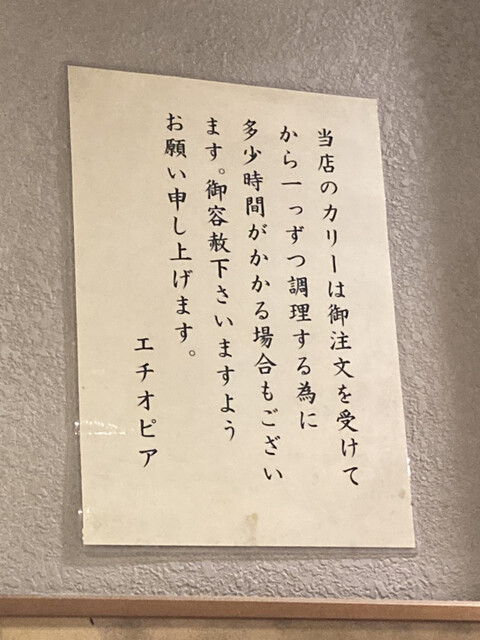 当店のカリーは御注文を受けて
から一っずつ調理する為に
多少時間がかかる場合もござい
ます。御容赦下さいますよう
お願い申し上げます。
エチオピア